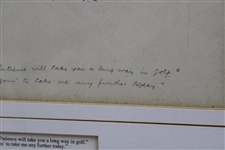 Patience will take you a long way in golf "
to take me any further today "
"Patience will take you a long way in golf."
n' to take me any further today."